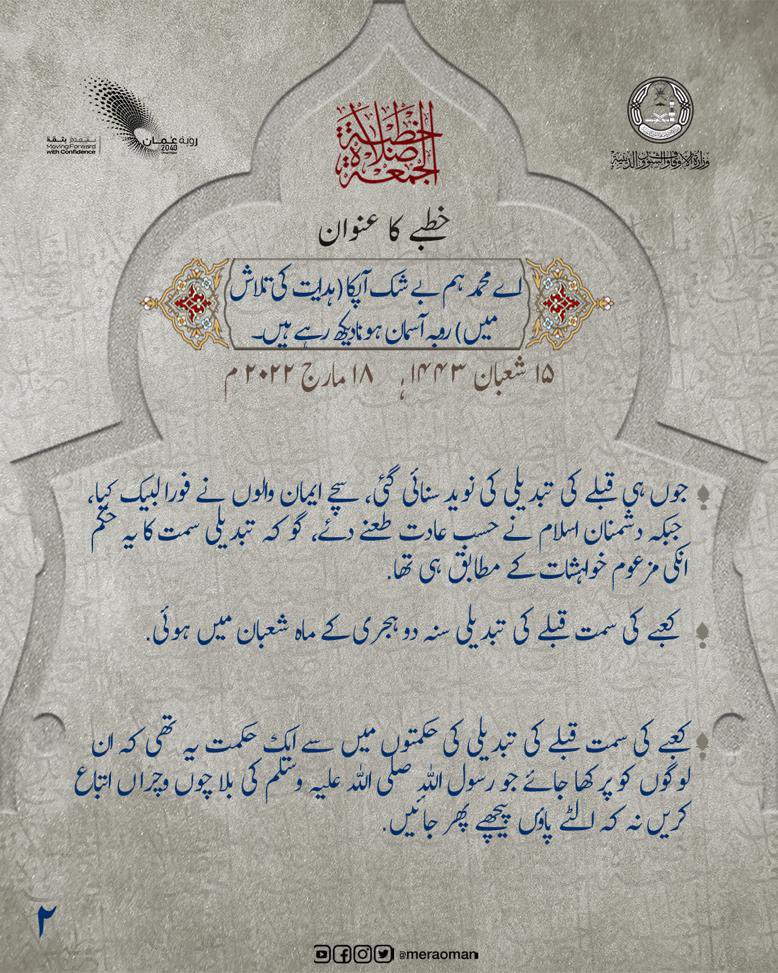 رؤية عُمان
2040
نتقدم بثقة
Moving Forward
with Confidence
وزارة الأوقاف والشؤون الدينية
الخطبة
صلاة
الجمعة
خطبے کا عنوان
اے محمد ہم بے شک آپکا (ہدایت کی تلاش
میں) روبہ آسمان ہونا دیکھ رہے ہیں۔
۱۵ شعبان ۱۴۴۳ھ ۱۸ مارچ ۲۰۲۲ م
جوں ہی قبلے کی تبدیلی کی نوید سنائی گئی، سچے ایمان والوں نے فورا لبیک کہا،
جبکہ دشمنان اسلام نے حسب عادت طعنے دئے، گو کہ تبدیلی سمت کا یہ حکم
انکی مزعوم خواہشات کے مطابق ہی تھا.
کعبے کی سمت قبلے کی تبدیلی سنہ دو ہجری کے ماہ شعبان میں ہوئی.
کعبے کی سمت قبلے کی تبدیلی کی حکمتوں میں سے ایک حکمت یہ تھی کہ ان
لوگوں کو پرکھا جائے جو رسول اللہ صلی اللہ علیہ وسلم کی بلا چوں وچراں اتباع
کریں نہ کہ الٹے پاؤں پیچھے پھر جائیں.
۲
@meraoman